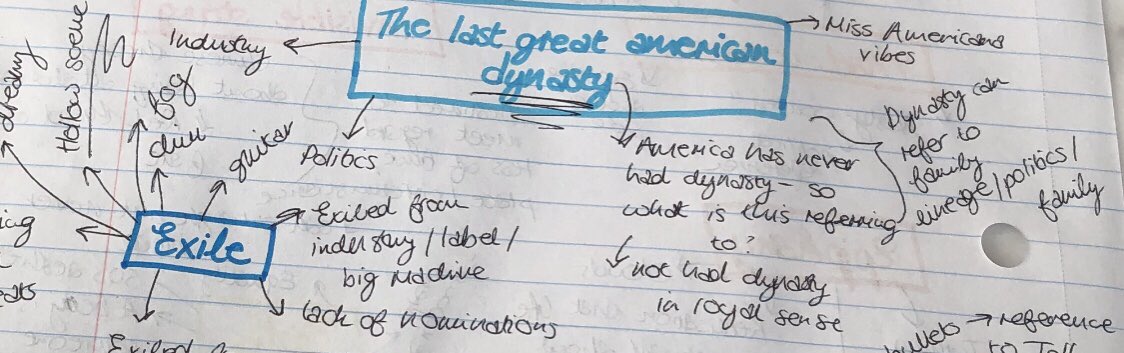 The last great american
dynasty
Industry
Politics
Miss Americana
vibes
America has never
had dynasty - so
what is this referring
to?
not had dynasty
in royal sense
Dynasty can
refer to
family
lineage/politics/
family
Exile
dreamy
Hollow scene
fog
dim
guitar
Exiled from
industry/label/
big machine
lack of nominations
Exiled
→ reference